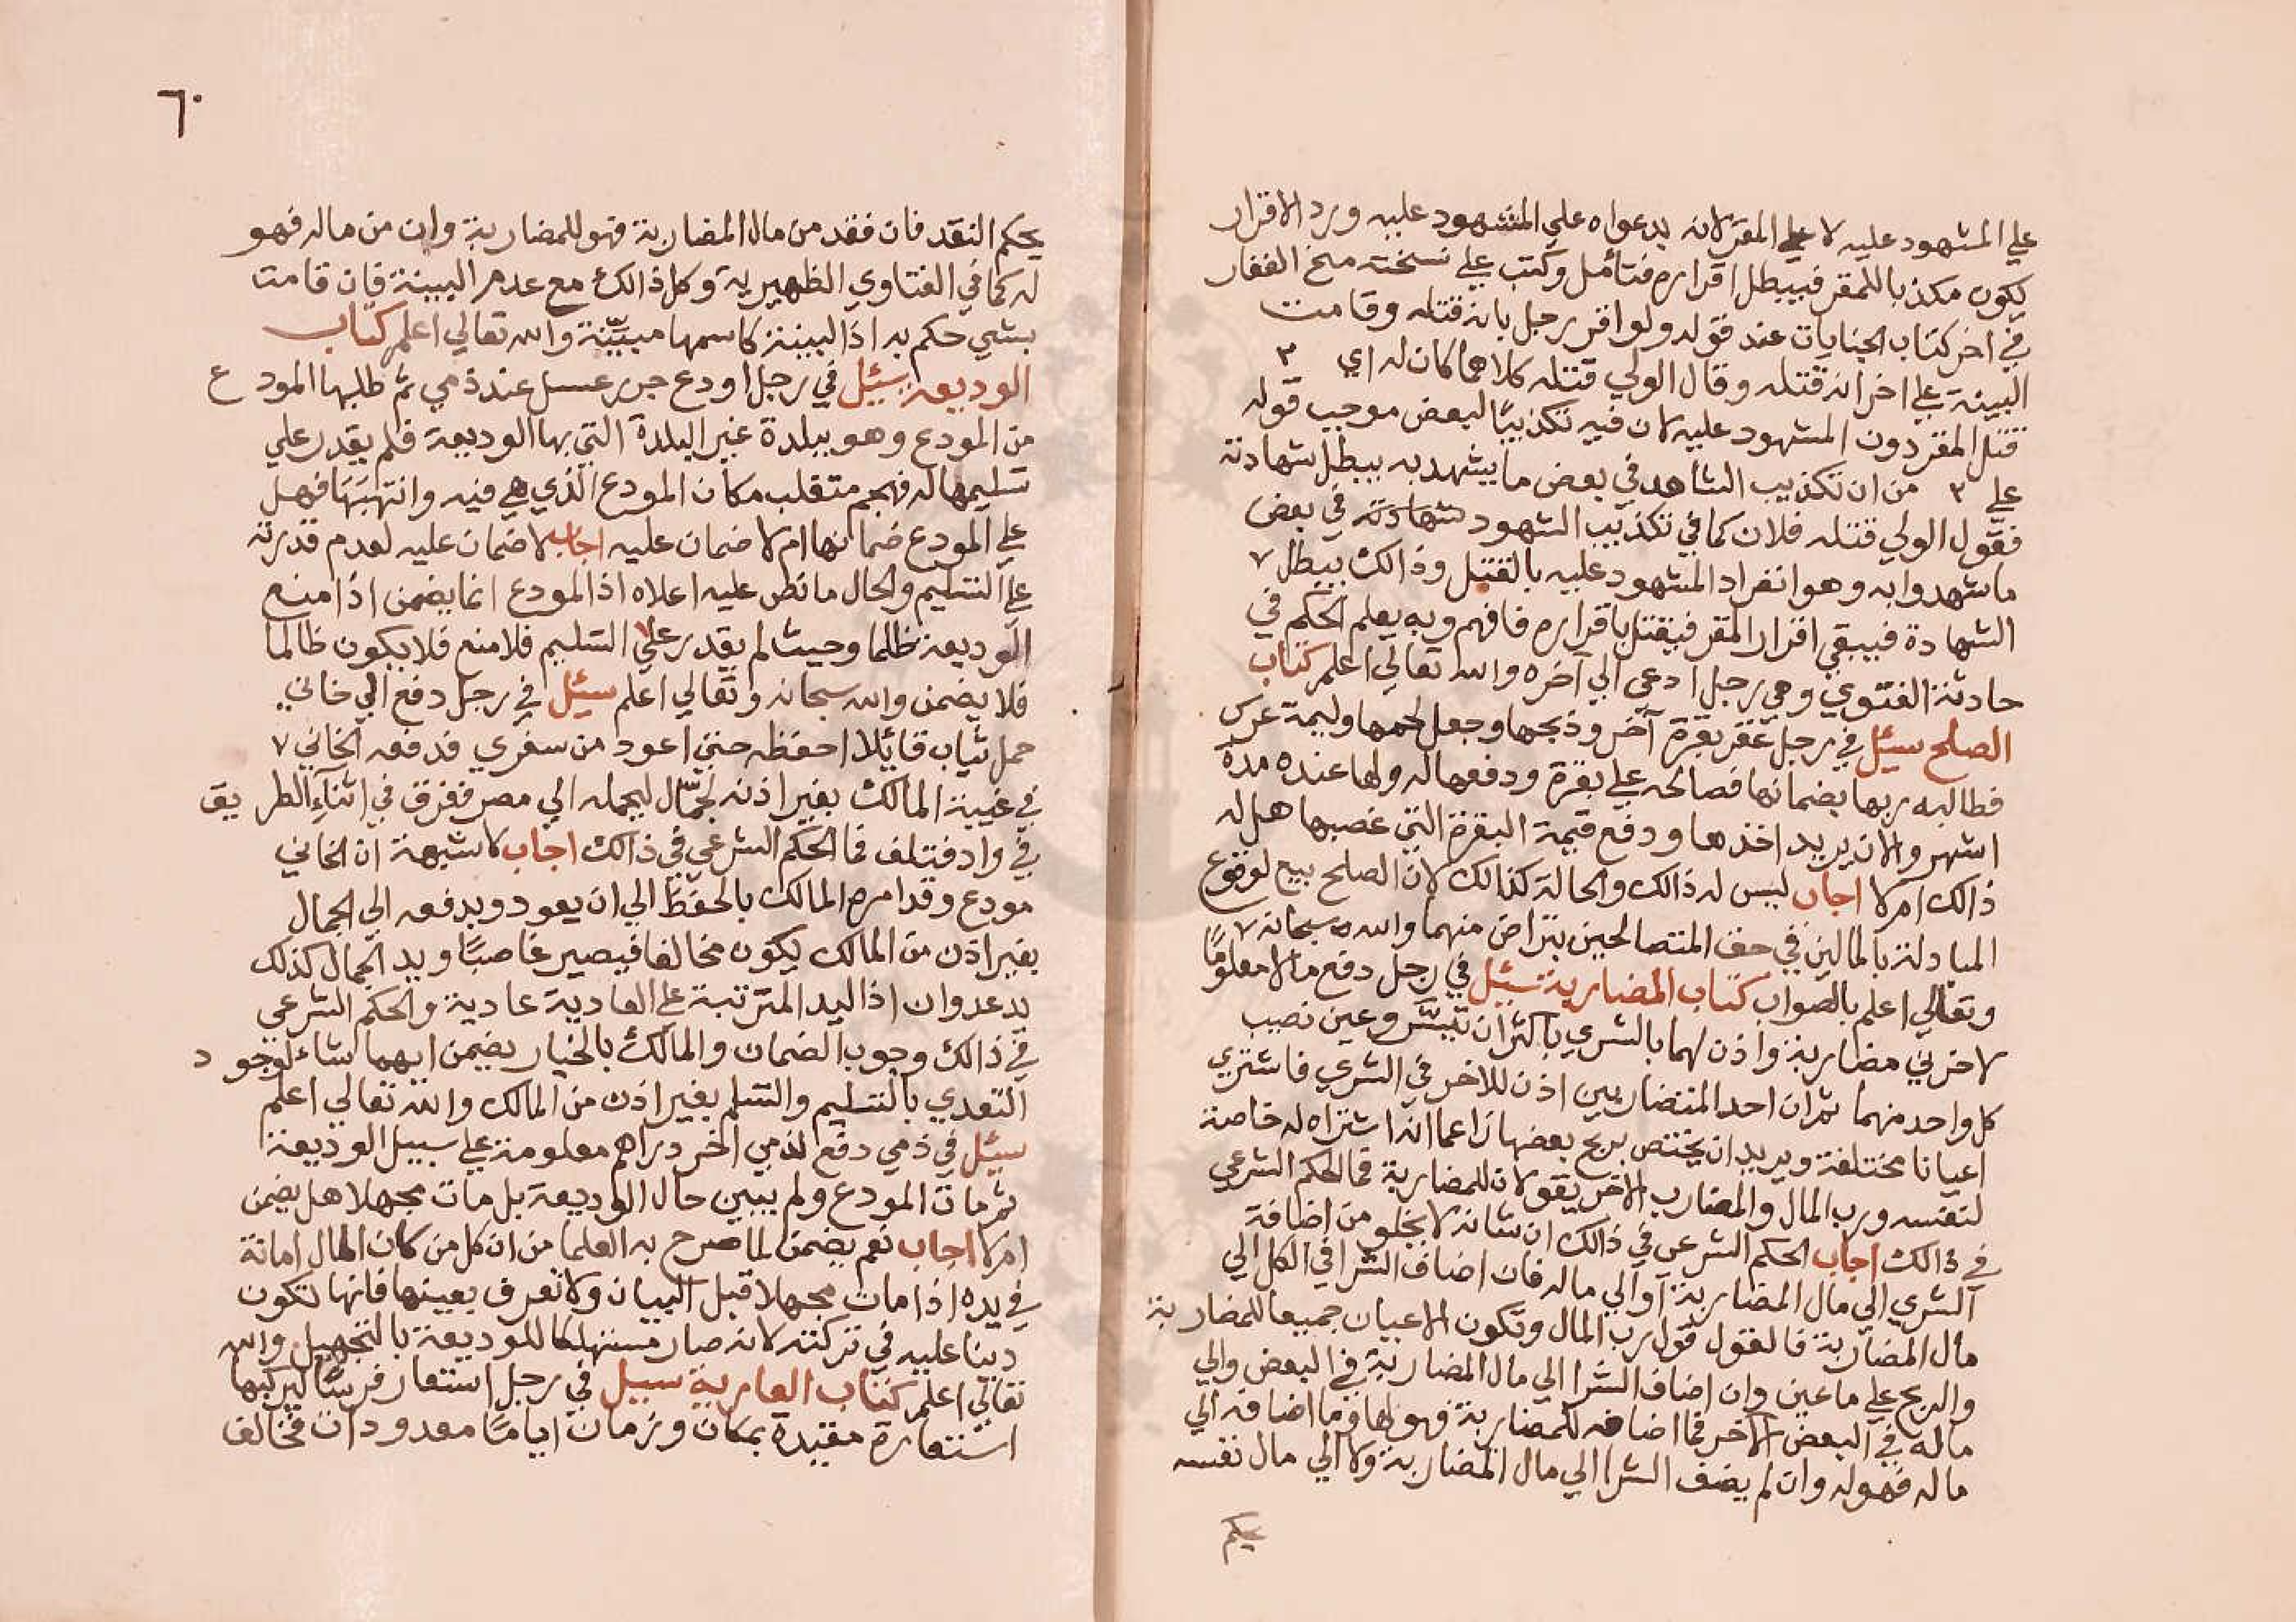 علي المشهود عليه لا علي المقر لانه بدعواه علي المشهود عليه ورد الاقرار
يكون مكذبا للمقر فيبطل اقراره فتأمل وكتب علي نسخته منح الغفار
في اخر كتاب الجنايات عند قوله ولو اقر رجل بانه قتله وقامت
البينة علي اخر انه قتله وقال الولي قتله كلاهما كان له اي ٣
قتل المقر دون المشهود عليه لان فيه تكذيبًا لبعض موجب قوله
علي ٣ من ان تكذيب الشاهد في بعض ما يشهد به يبطل شهادته
فقول الولي قتله فلان كما في تكذيب الشهود شهادته في بعض
ما شهدوا به وهو انفراد المشهود عليه بالقتل وذالك يبطل ٧
الشهادة فيبقي اقرار المقر فيقتل باقراره فافهم وبه يعلم الحكم في
حادثة الفتوي وهي رجل ادعي الي آخره والله تعالي اعلم كتاب
الصلح سئل في رجل عقر بقرة آخر وذبحها وجعل لحمها وليمة عرس
فطالبه ربها بضمانها فصالحه علي بقرة ودفعها له ولها عنده مدة
اشهر والان يريد اخذها ودفع قيمة البقرة التي غصبها هل له
ذالك ام لا اجاب ليس له ذالك والحالة كذالك لان الصلح بيع لوقوع
المبادلة بالمالين في حق المتصالحين بتراض منهما والله سبحانه ٧
وتعالي اعلم بالصواب كتاب المضاربة سئل في رجل دفع مالا معلومًا
لاخرين مضاربة واذن لهما بالشري باكثر ان تيسَّر وعين نصيب
كل واحد منهما ثم ان احد المتضاربين اذن للاخر في الشري فاشتري
اعيانا مختلفة ويريد ان يختص بربح بعضها زاعما انه اشتراه له خاصة
لنفسه ورب المال والمضارب الاخر يقولان للمضاربة فما الحكم الشرعي
في ذالك اجاب الحكم الشرعي في ذالك ان شانه لا يخلو من اضافة
الشري الي مال المضاربة او الي ماله فان اضاف الشرا في الكل الي
مال المضاربة فالقول قول رب المال وتكون الاعيان جميعا للمضاربة
والربح علي ما عين وان اضاف الشرا الي مال المضاربة في البعض والي
ماله في البعض الاخر فما اضافه للمضاربة فهو لها وما اضافه الي
ماله فهو له وان لم يضف الشرا الي مال المضاربة ولا الي مال نفسه
يحكم
٦٠
يحكم النقد فان فقد من مال المضاربة فهو للمضاربة وان من ماله فهو
له كما في الفتاوي الظهيرية وكل ذالك مع عدم البينة فان قامت
بشي حكم به اذ البينة كاسمها مبيّنة والله تعالي اعلم كتاب
الوديعة سئل في رجل اودع جرر عسل عند ذمي ثم طلبها المودع
من المودع وهو ببلدة غير البلدة التي بها الوديعة فلم يقدر علي
تسليمها له فهجم متقلب مكان المودع الذي هي فيه وانتهبها فهل
علي المودع ضمانها ام لا ضمان عليه اجاب لا ضمان عليه لعدم قدرته
علي التسليم والحال ما نص عليه اعلاه اذ المودع انما يضمن اذا منع
الوديعة ظلما وحيث لم يقدر علي التسليم فلا منع فلا يكون ظالما
فلا يضمن والله سبحانه وتعالي اعلم سئل في رجل دفع الي خاني
حمل ثياب قائلا احفظه حتي اعود من سفري فدفعه الخاني ٧
في غيبة المالك بغير اذنه لجمّال ليحمله الي مصر فغرق في اثناء الطريق
في واد فتلف فما الحكم الشرعي في ذالك اجاب لا شبهة ان الخاني
مودع وقد امره المالك بالحفظ الي ان يعود وبدفعه الي الجمال
بغير اذن من المالك يكون مخالفا فيصير غاصبًا ويد الجمال كذلك
يد عدوان اذ اليد المترتبة علي العادية عادية والحكم الشرعي
في ذالك وجوب الضمان والمالك بالخيار يضمن ايهما شاء لوجود
التعدي بالتسليم والتسلم بغير اذن من المالك والله تعالي اعلم
سئل في ذمي دفع لذمي اخر دراهم معلومة علي سبيل الوديعة
ثم مات المودع ولم يبين حال الوديعة بل مات مجهلا هل يضمن
ام لا اجاب نعم يضمن لما صرح به العلما من ان كل من كان المال امانة
في يده اذا مات مجهلا قبل البيان ولا تعرف بعينها فانها تكون
دينا عليه في تركته لانه صار مستهلكا للوديعة بالتجهيل والله
تعالي اعلم كتاب العارية سيل في رجل استعار فرسًا ليركبها
استعارة مقيدة بمكان وزمان ايامًا معدودات فخالف